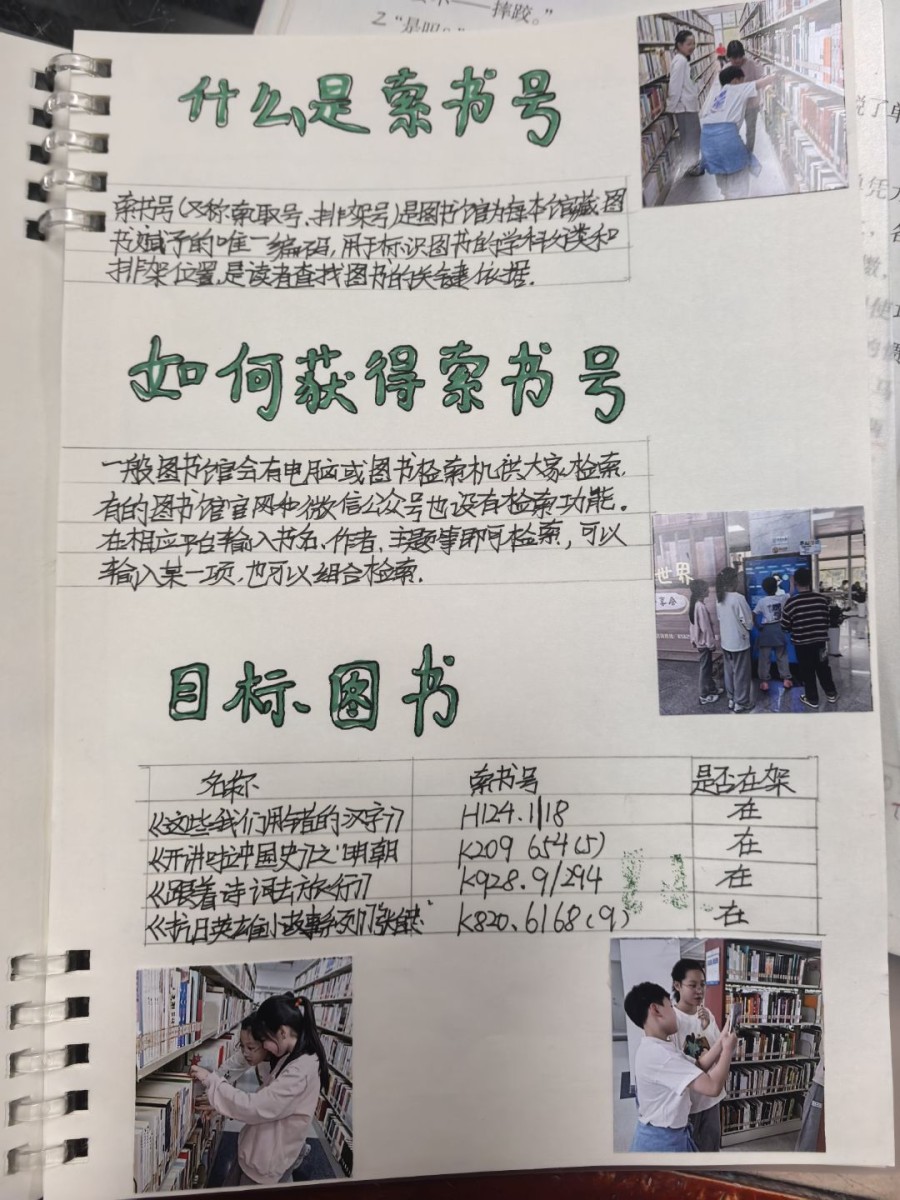 摔跤。”
2.“是吧？”
什么是索书号
索书号(又称索取号、排架号)是图书馆为每本馆藏图
书赋予的唯一编码,用于标识图书的学科分类和
排架位置,是读者查找图书的关键依据.
如何获得索书号
一般图书馆会有电脑或图书检索机供大家检索.
有的图书馆官网和微信公众号也设有检索功能。
在相应平台输入书名、作者、主题等即可检索,可以
输入某一项,也可以组合检索.
世界
目标图书
名称 索书号 是否在架
《这些我们用错的汉字》 H124.1/18 在
《开讲啦中国史》之“明朝 K209 654(5) 在
《跟着诗词去旅行》 K928.9/294 在
《抗日英雄小故事系列》 K820.6168(9) 在